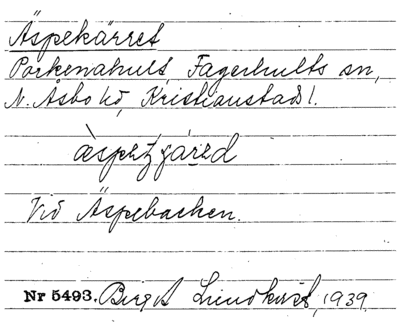 Äspekärret
Porkenahult, Fagerhults sn,
N. Åsbo hd, Kristianstads l.
Vid Äspebacken.
Nr 5493. Birgit Lundkvist, 1939.